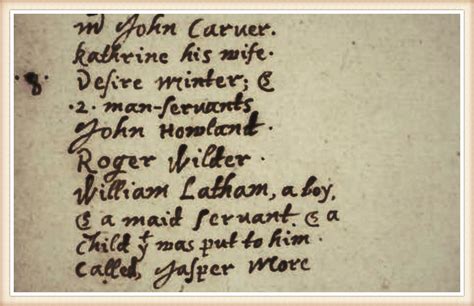 mr John Carver.
kathrine his wife.
Desire Winter; &
8. .2. man-servants
John Howland.
Roger Wilder.
William Latham, a boy,
& a maid servant. & a
child yt was put to him.
called, Jasper More